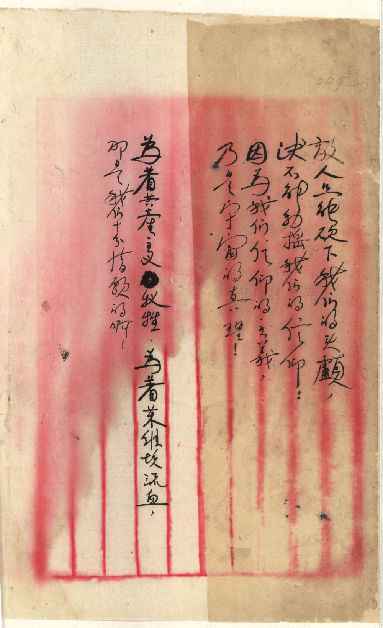 敌人只能砍下我们的头顱，
決不能動摇我们的信仰！
因為我们信仰的主義，
乃是宇宙的真理！
為着共產主义牺牲，為着苏维埃流血，
那是我们十分情願的啊！